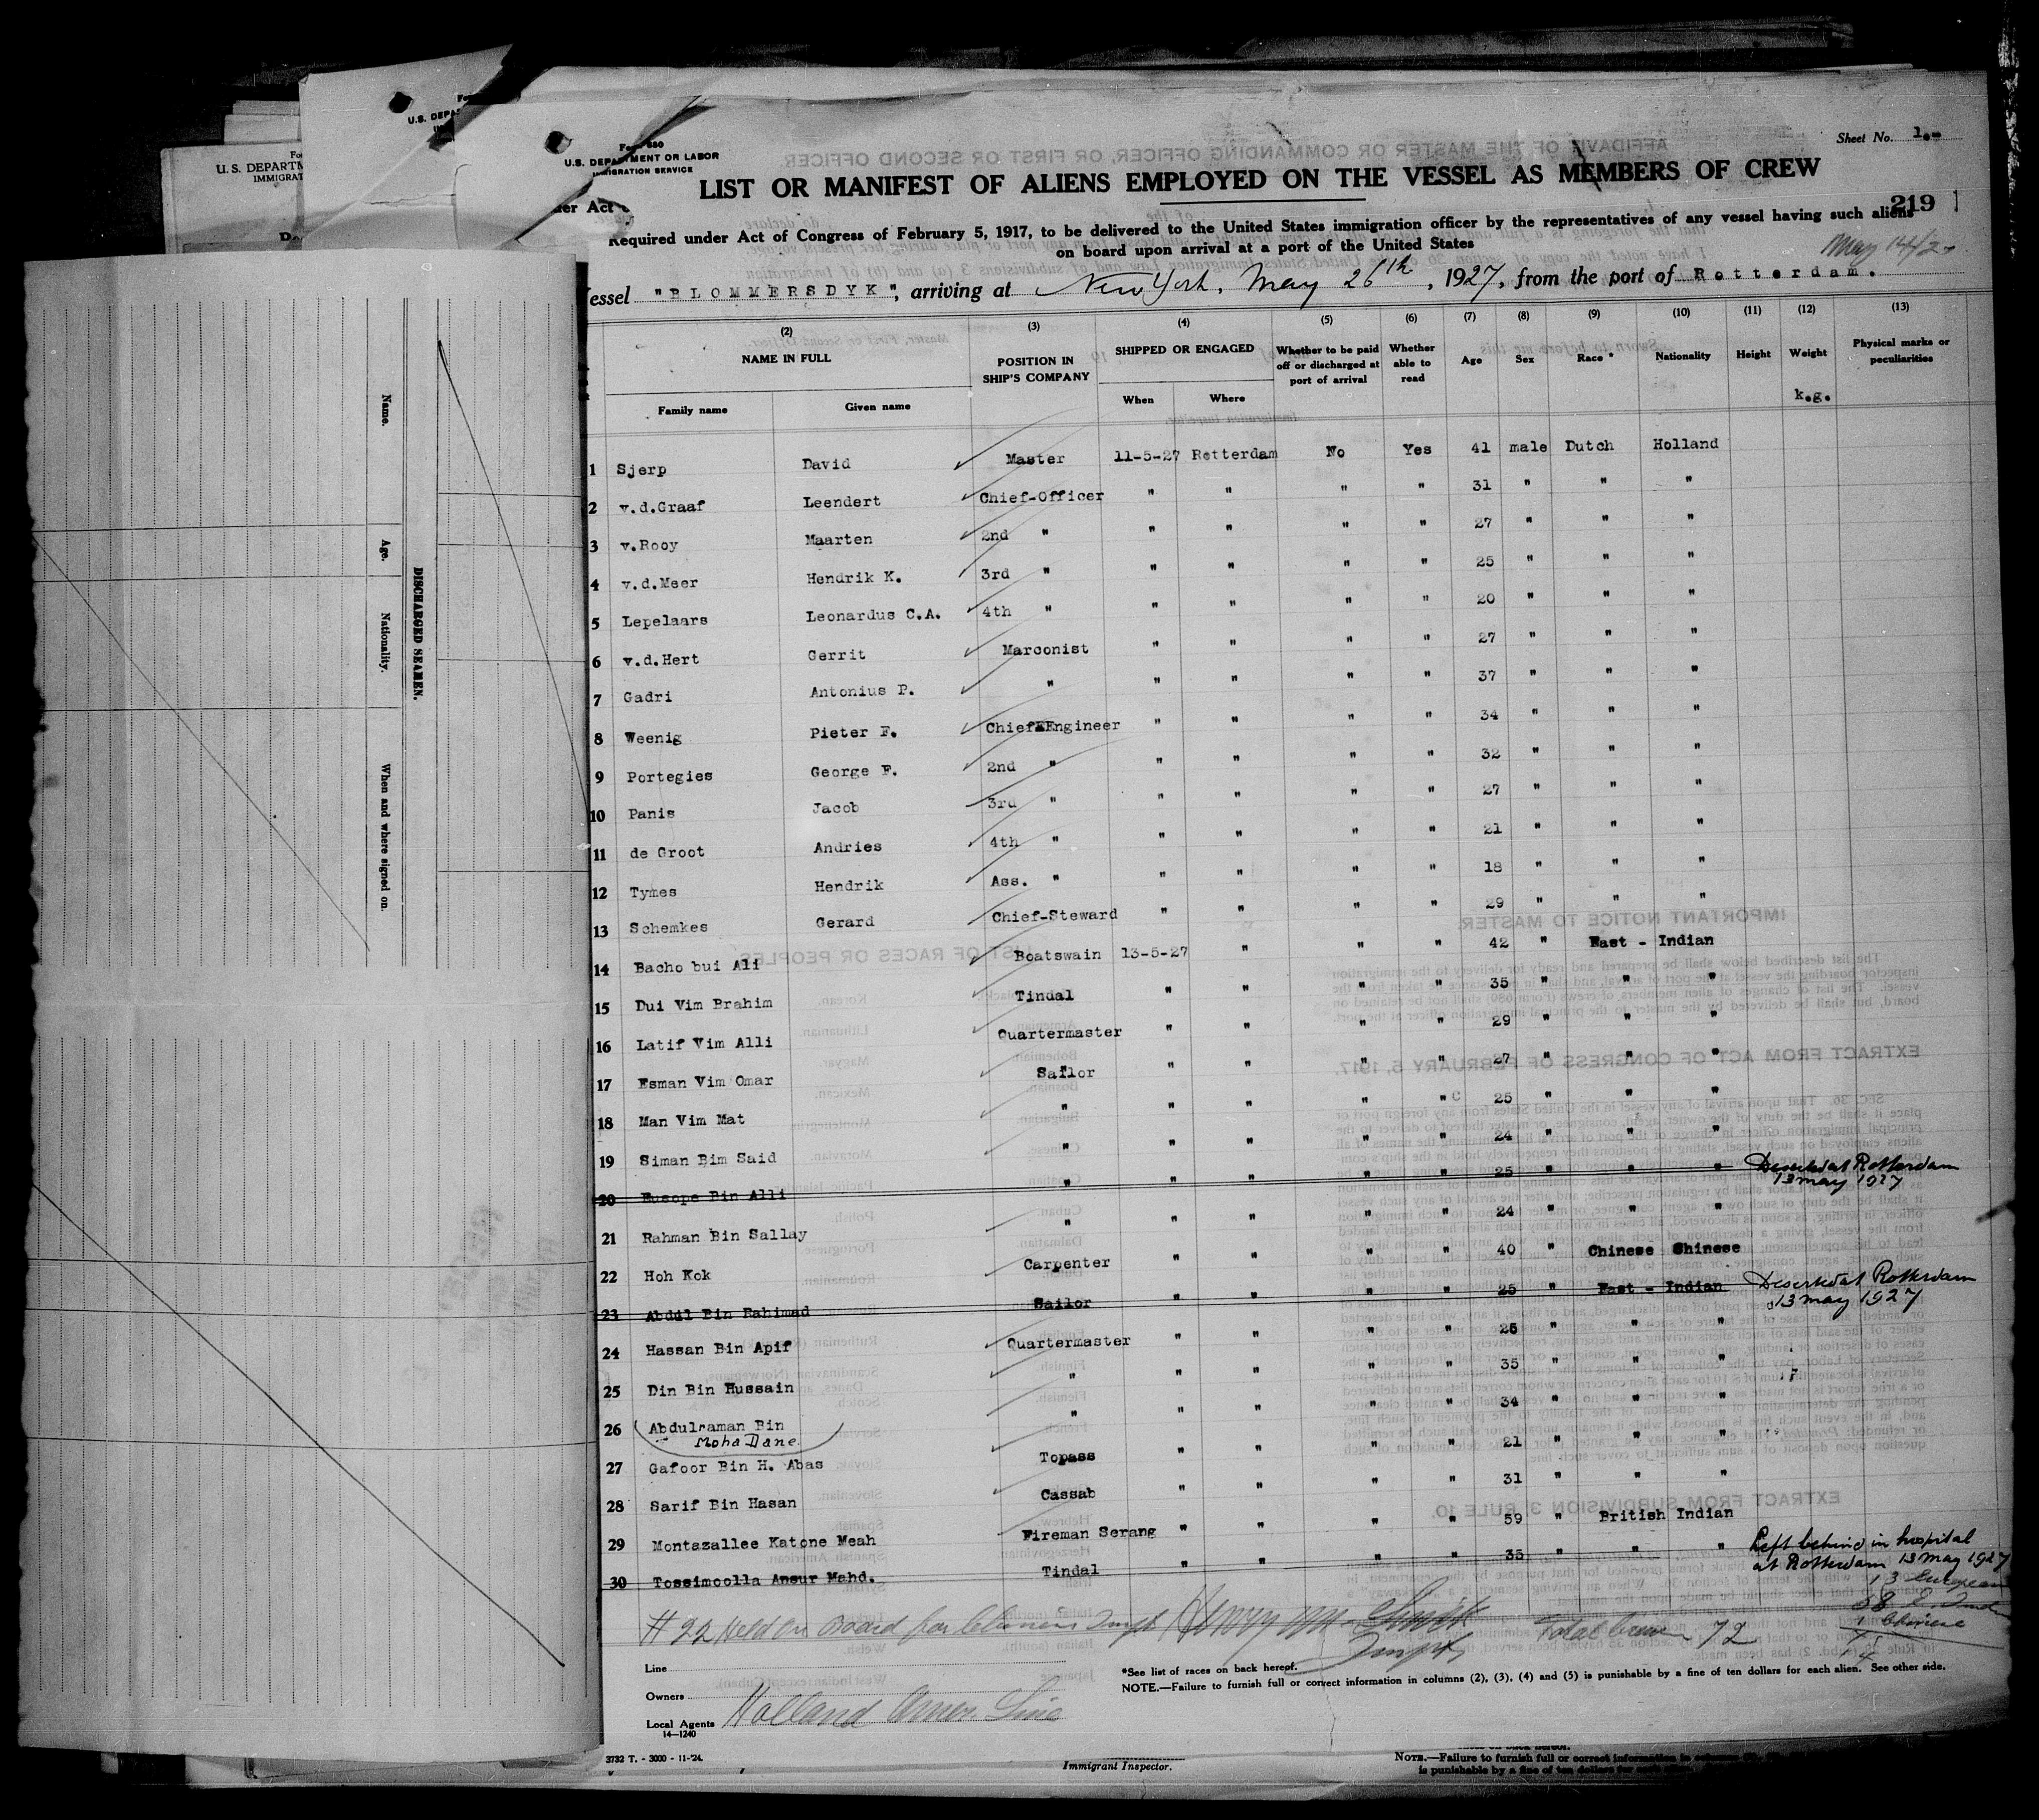 Sheet No. 1.-
U.S. DEPARTMENT OR LABOR
IMMIGRATION SERVICE
LIST OR MANIFEST OF ALIENS EMPLOYED ON THE VESSEL AS MEMBERS OF CREW
219
Required under Act of Congress of February 5, 1917, to be delivered to the United States immigration officer by the representatives of any vessel having such aliens
on board upon arrival at a port of the United States
Vessel "BLOMMERSDYK", arriving at New York, May 26th, 1927, from the port of Rotterdam.
(2) (3) (4) (5) (6) (7) (8) (9) (10) (11) (12) (13)
NAME IN FULL POSITION IN SHIP'S COMPANY SHIPPED OR ENGAGED Whether to be paid off or discharged at port of arrival Whether able to read Age Sex Race * Nationality Height Weight Physical marks or peculiarities
Family name Given name When Where k.g.
1 Sjerp David Master 11-5-27 Rotterdam No Yes 41 male Dutch Holland
2 v.d.Graaf Leendert Chief-Officer " " " " 31 " " "
3 v.Rooy Maarten 2nd " " " " " 27 " " "
4 v.d.Meer Hendrik K. 3rd " " " " " 25 " " "
5 Lepelaars Leonardus C.A. 4th " " " " " 20 " " "
6 v.d.Hert Gerrit Marconist " " " " 27 " " "
7 Gadri Antonius P. " " " " " 37 " " "
8 Weenig Pieter F. Chief Engineer " " " " 34 " " "
9 Portegies George F. 2nd " " " " " 32 " " "
10 Panis Jacob 3rd " " " " " 27 " " "
11 de Groot Andries 4th " " " " " 21 " " "
12 Tymes Hendrik Ass. " " " " " 18 " " "
13 Schemkes Gerard Chief-Steward " " " " 29 " " "
14 Bacho bui Ali Boatswain 13-5-27 " " " 42 " East - Indian
15 Dui Vim Brahim Tindal " " " " 35 " " "
16 Latif Vim Alli Quartermaster " " " " 29 " " "
17 Esman Vim Omar Sailor " " " " 27 " " "
18 Man Vim Mat " " " " " 25 " " "
19 Siman Bim Said " " " " " 24 " " "
20 Eusope Bin Alli " " " " " 25 " " " Deserted at Rotterdam 13 may 1927
21 Rahman Bin Sallay " " " " " 24 " " "
22 Hoh Kok Carpenter " " " " 40 " Chinese Chinese
23 Abdil Bin Rahimad Sailor " " " " 25 " East - Indian Deserted at Rotterdam 13 may 1927
24 Hassan Bin Apif Quartermaster " " " " 26 " " "
25 Din Bin Hussain " " " " " 35 " " "
26 Abdulraman Bin Moha Dane " " " " " 34 " " "
27 Gafoor Bin H. Abas Topass " " " " 21 " " "
28 Sarif Bin Hasan Cassab " " " " 31 " " "
29 Montazallee Katone Meah Fireman Serang " " " " 59 " British Indian
30 Tossimoolla Ansur Mahd. Tindal " " " " 35 " " " Left behind in hospital at Rotterdam 13 may 1927
13 European
1 Chinese
# 22 Held On Board
Total Crew 72
Line
Owners
Local Agents Holland Amer. Line
14—1240
*See list of races on back hereof.
NOTE.—Failure to furnish full or correct information in columns (2), (3), (4) and (5) is punishable by a fine of ten dollars for each alien. See other side.
3732 T. - 3000 - 11-'24.
Immigrant Inspector.
NOTE.—Failure to furnish full or correct information in
is punishable by a fine of ten dollars for
DISCHARGED SEAMEN.
Name. Age. Nationality. When and where signed on.
U.S. DEPARTM
IMMIGRAT